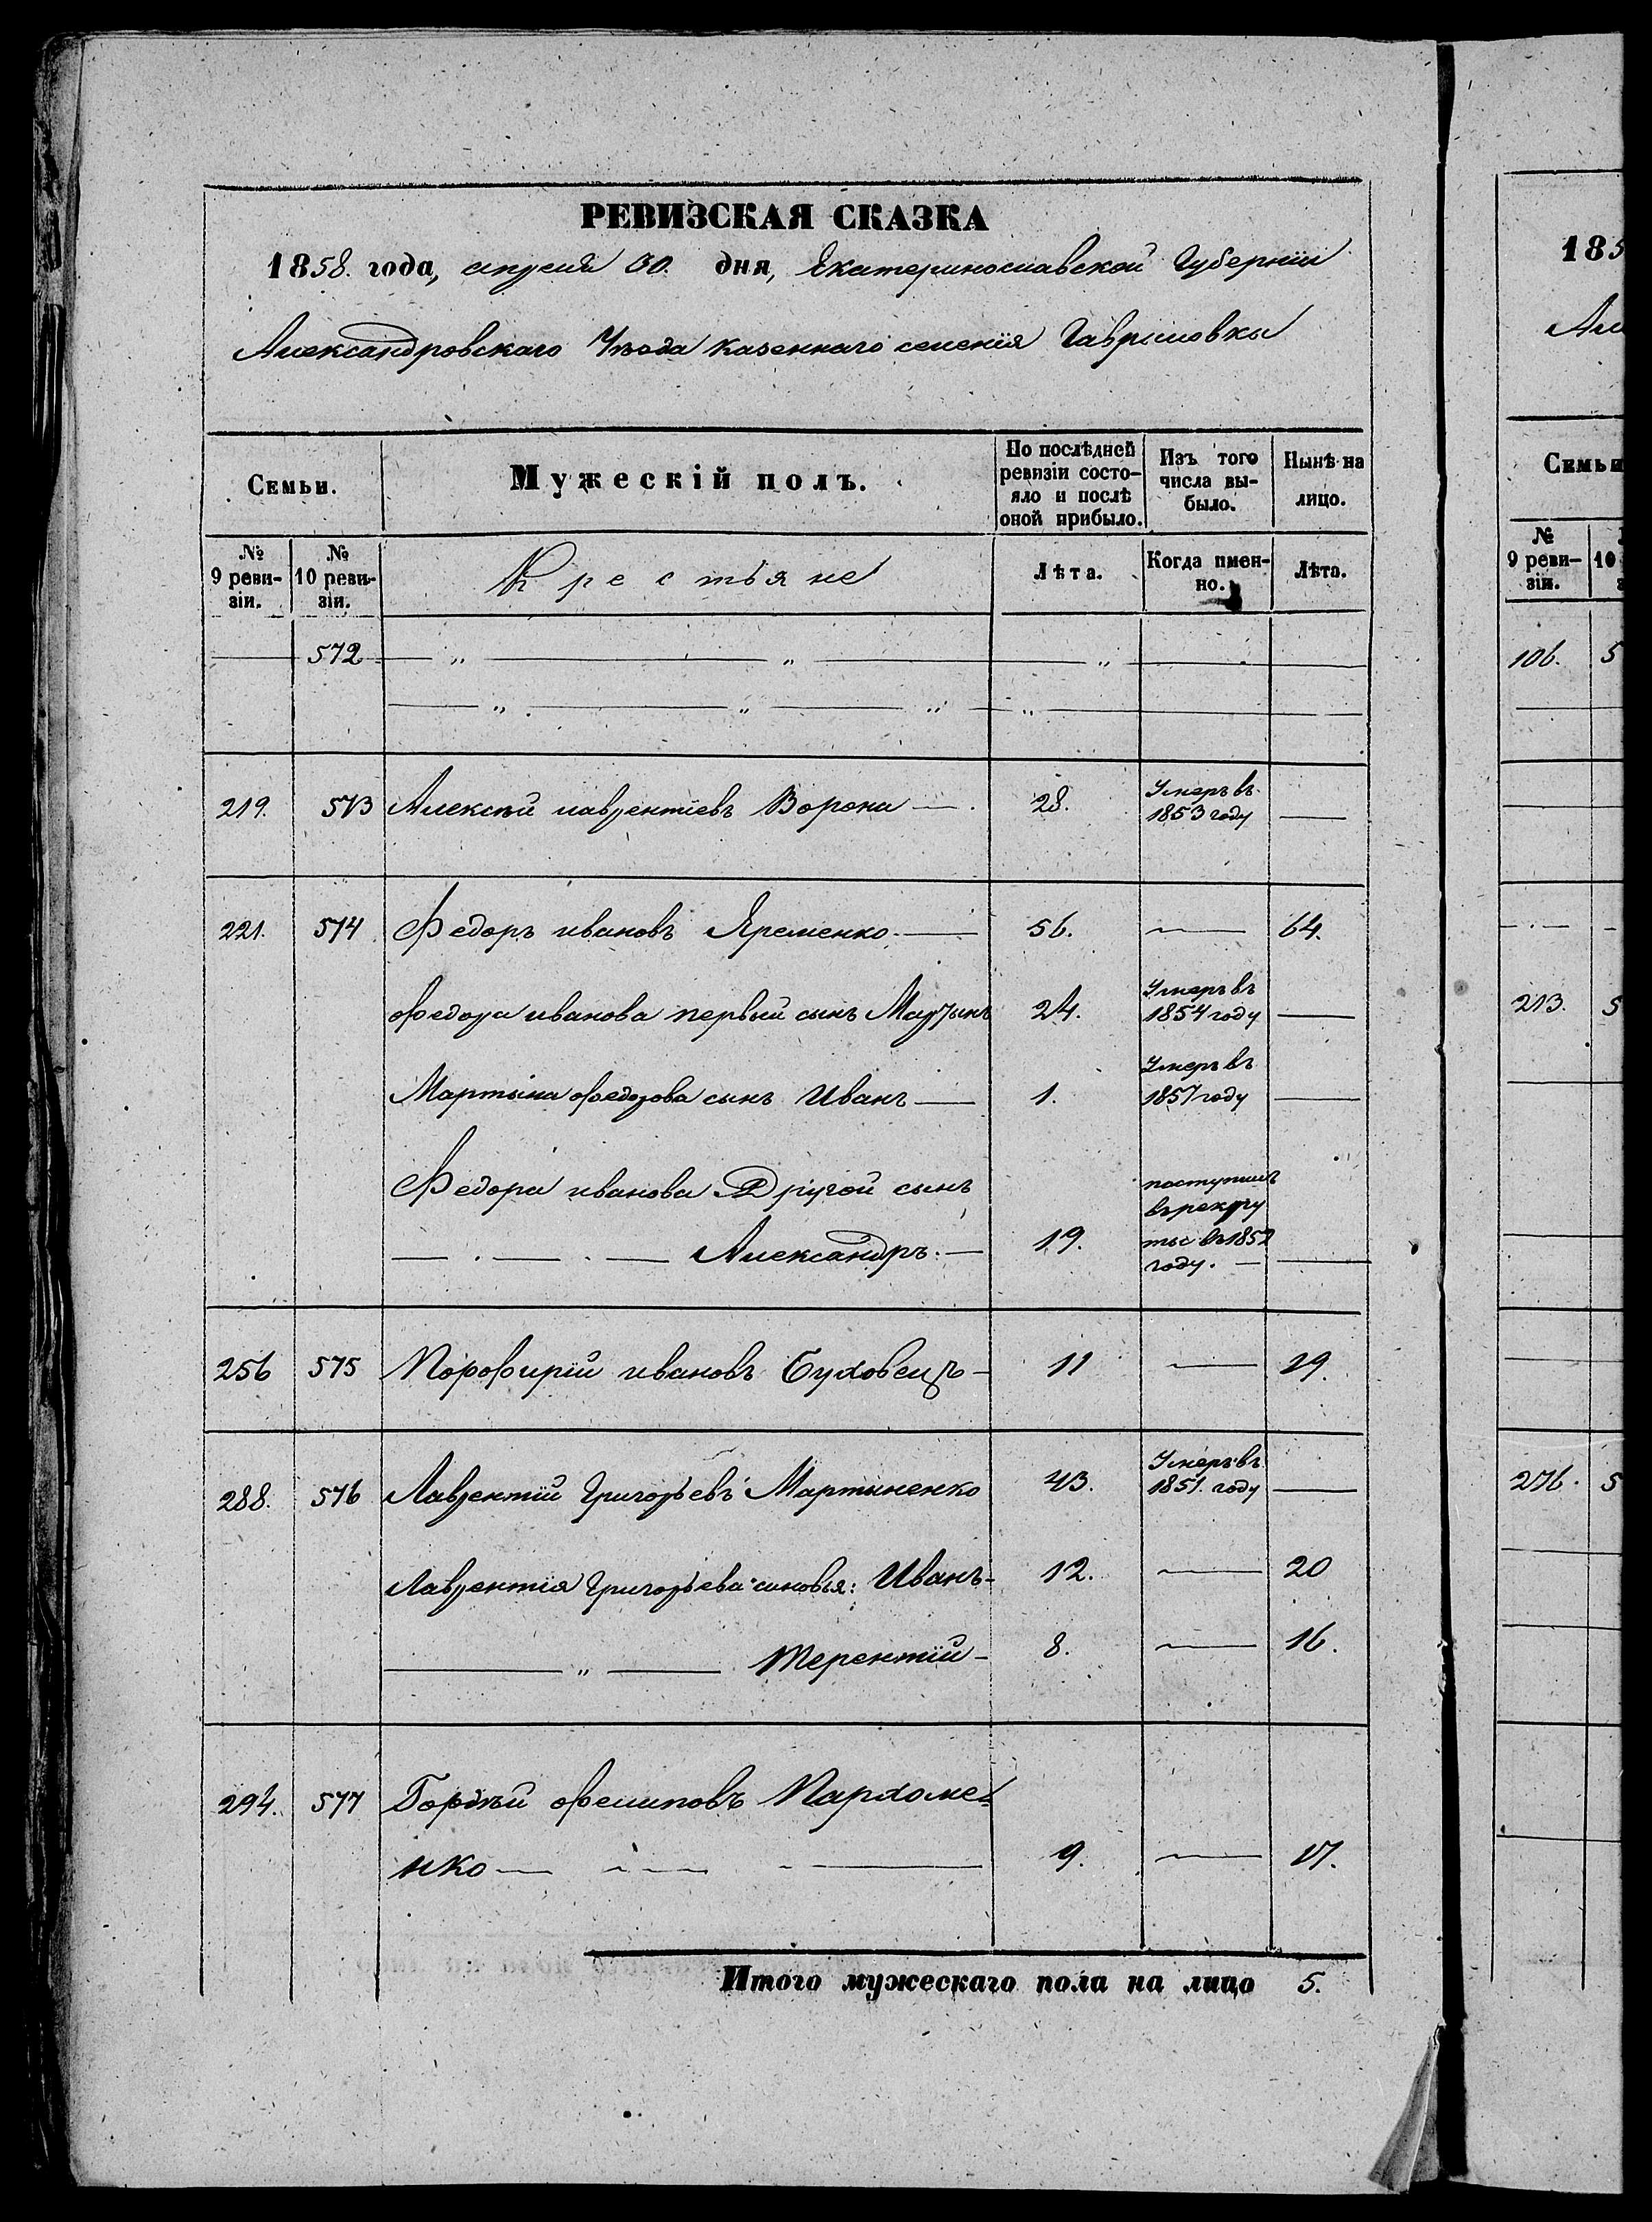 РЕВИЗСКАЯ СКАЗКА
1858. года, апреля 30. дня, Екатеринославской Губернiи
Александровскаго Уѣзда казеннаго селенiя Гавриловки
Семьи.
Мужескiй полъ.
По послѣдней ревизiи состо-
яло и послѣ
оной прибыло.
Изъ того
числа вы-
было.
Нынѣ на
лицо.
№
9 реви-
зiи.
№
10 реви-
зiи.
Крестьяне
Лѣта.
Когда имен-
но.
Лѣта.
572 — „ — „ — „ —
— „ — „ — „ — „ —
219. 573 Алексѣй лаврентiевъ Ворона — 28. Умеръ въ
1853 году —
221. 574 Федоръ ивановъ Яременко — 56. — 64.
Федора иванова первый сынъ Мартынъ 24. Умеръ въ
1854 году —
Мартына федорова сынъ Иванъ — 1. Умеръ въ
1857 году —
Федора иванова Другой сынъ
— . — . — Александръ. — 19. поступилъ
въ рекру
ты въ 1852
году. — —
256 575 Порфирiй ивановъ Буховецъ — 11 — 19.
288. 576 Лаврентiй Григорьевъ Мартыненко 43. Умеръ въ
1851. году —
Лаврентiя Григорьева сыновья: Иванъ - 12. — 20
— „ — Терентiй - 8. — 16.
294. 577 Гордѣй филиповъ Пархоме=
нко — — — 9. — 17.
Итого мужескаго пола на лицо 5.
185
Ал
Семьи
№
9 реви-
зiи.
10
106. 5
213. 5
276. 5